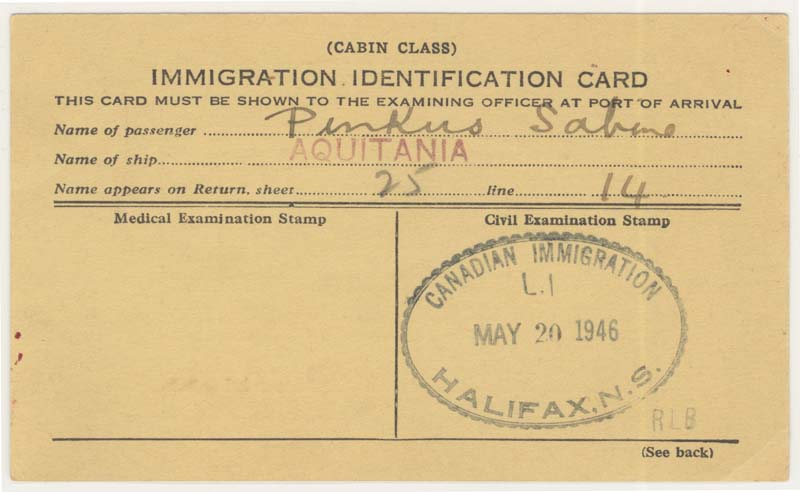 (CABIN CLASS)
IMMIGRATION IDENTIFICATION CARD
THIS CARD MUST BE SHOWN TO THE EXAMINING OFFICER AT PORT OF ARRIVAL
Name of passenger Pinkus Sabine
Name of ship AQUITANIA
Name appears on Return, sheet 25 line 14
Medical Examination Stamp
Civil Examination Stamp
CANADIAN IMMIGRATION
L.I
MAY 20 1946
HALIFAX, N.S.
RLB
(See back)